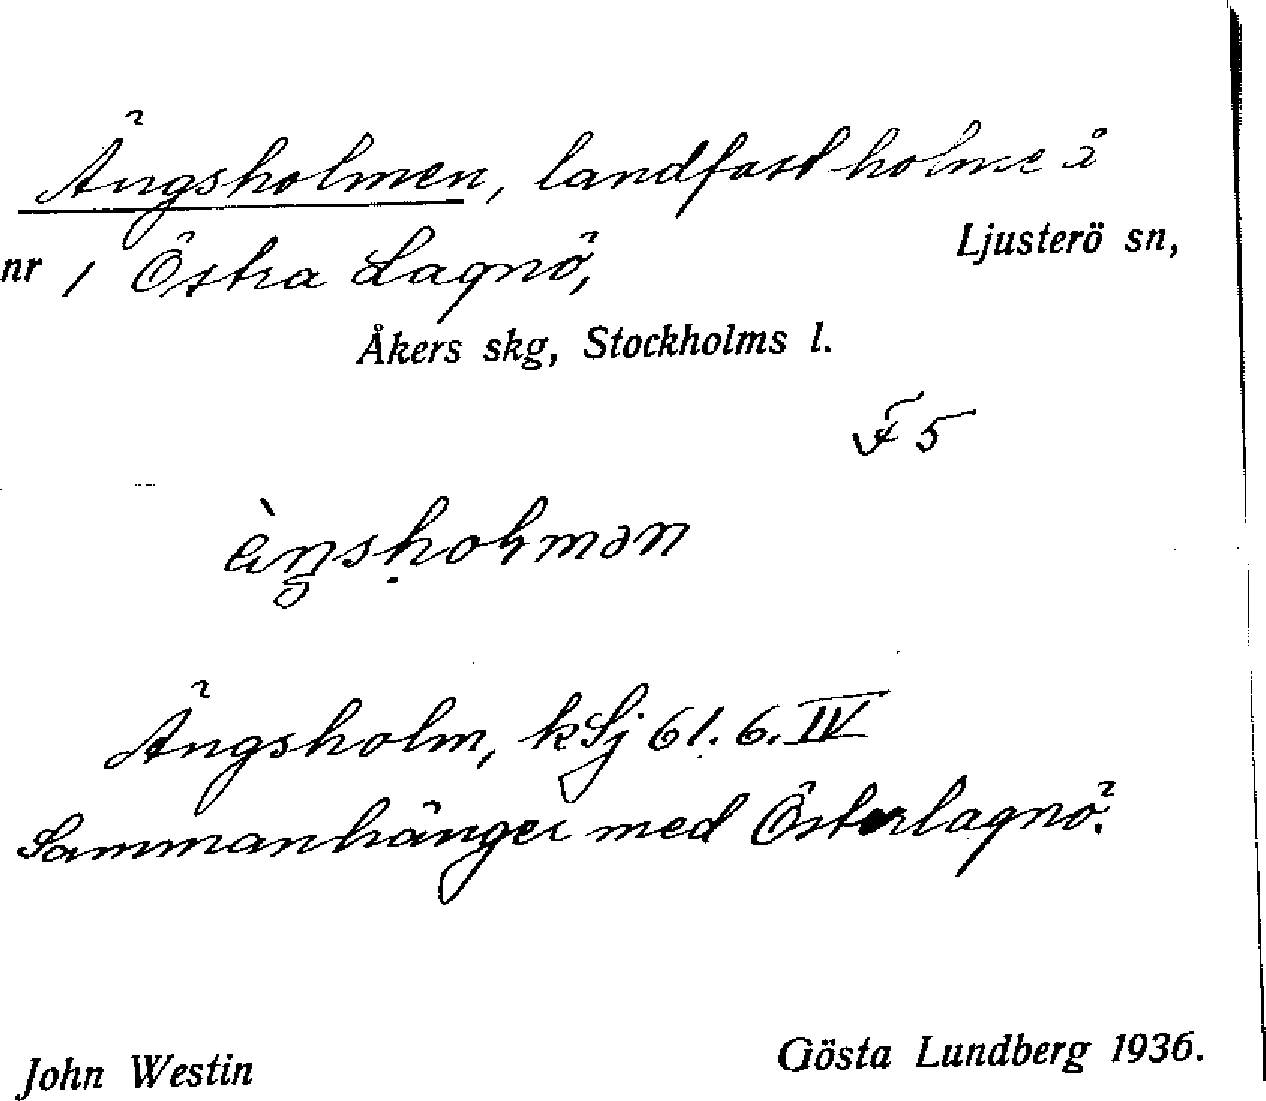 Ängsholmen, landfast holme å
Ljusterö sn,
nr 1 Östra Lagnö,
Åkers skg, Stockholms l.
F5
Ängsholm, kSj 61. 6. IV
Sammanhänger med Österlagnö.
John Westin
Gösta Lundberg 1936.